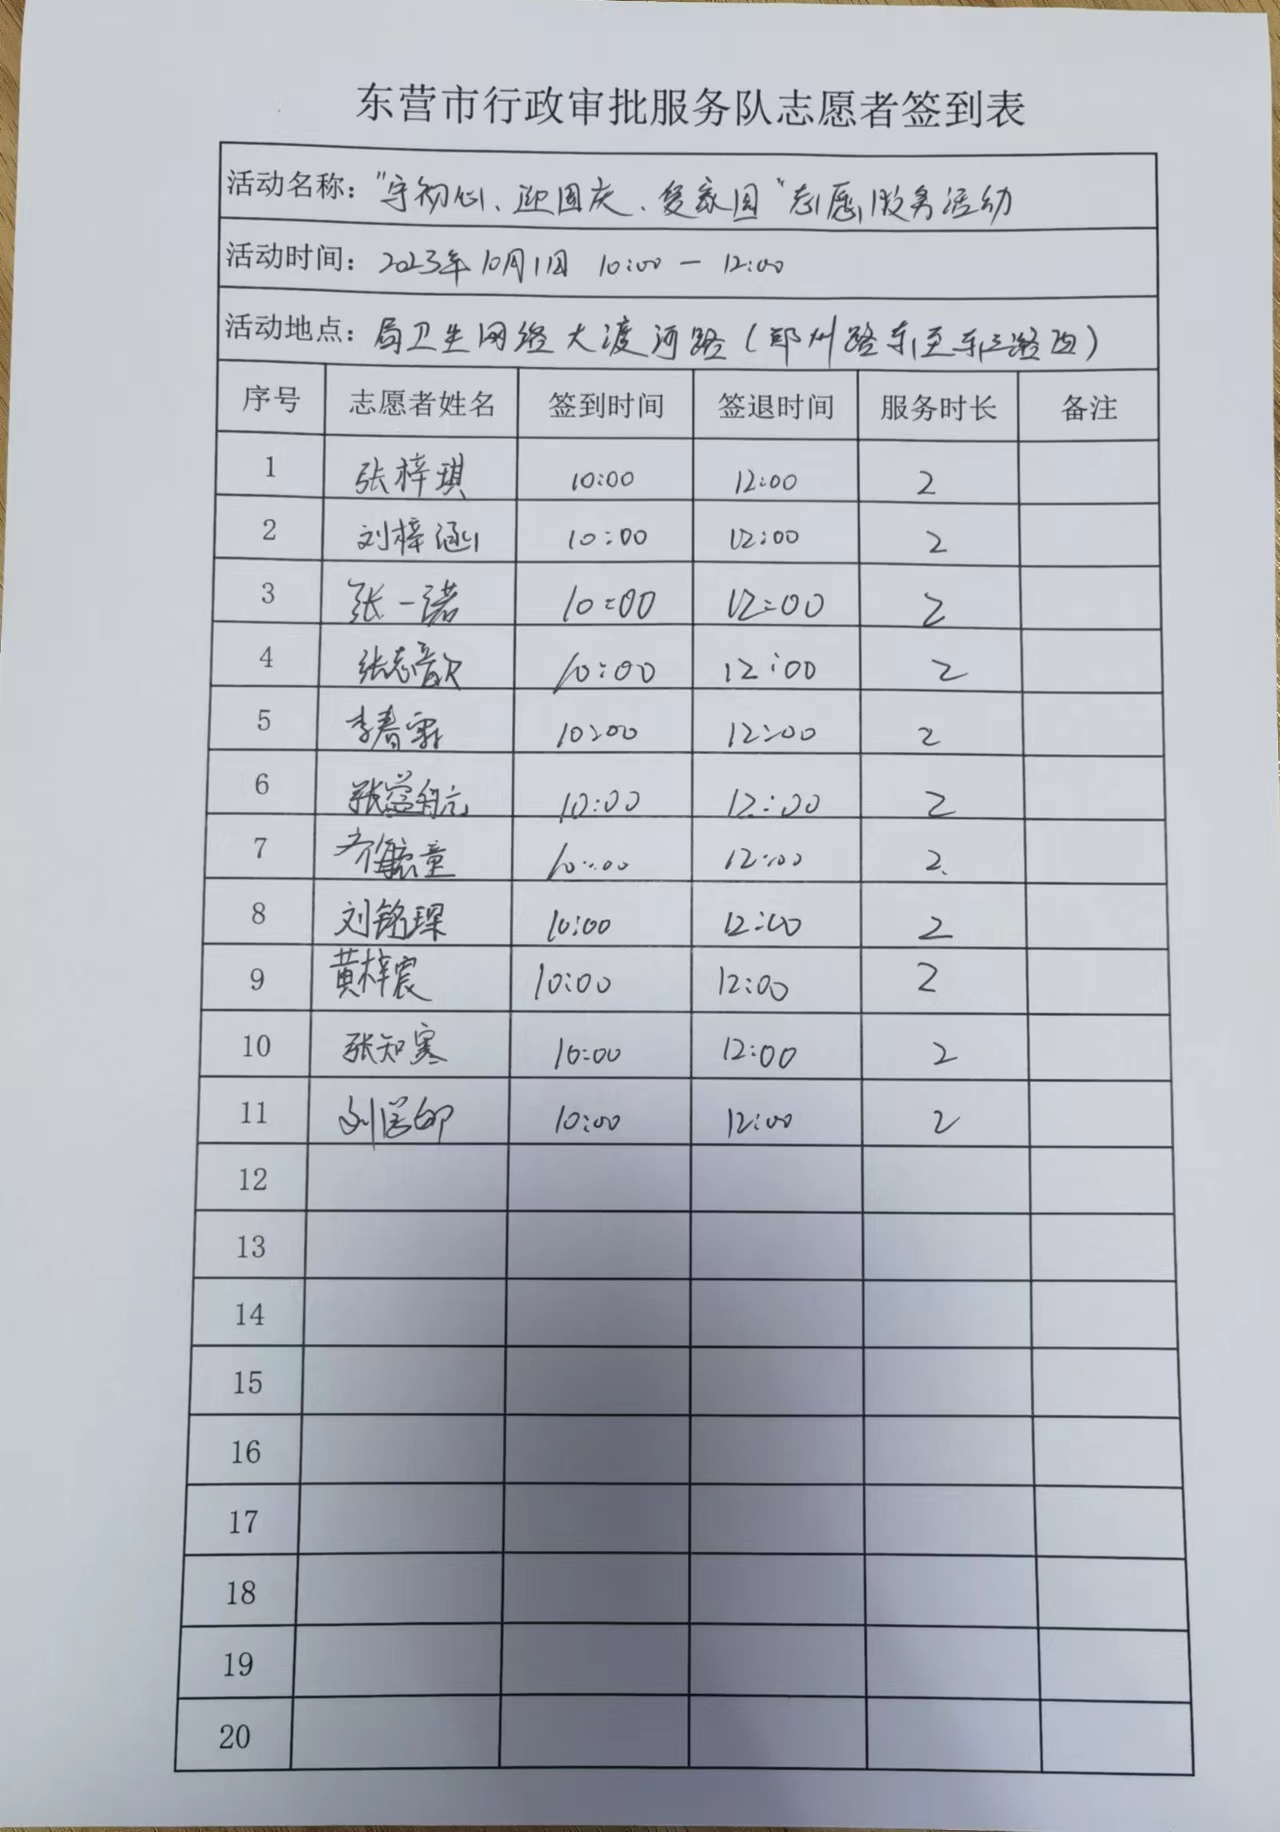 东营市行政审批服务队志愿者签到表
活动名称："守初心、迎国庆、爱家园"志愿服务活动
活动时间：2023年10月1日 10:00 — 12:00
活动地点：局卫生网络大渡河路（郑州路东至东三路西）
序号 志愿者姓名 签到时间 签退时间 服务时长 备注
1 张梓琪 10:00 12:00 2
2 刘梓涵 10:00 12:00 2
3 张一诺 10:00 12:00 2
4 张志歆 10:00 12:00 2
5 李春霖 10:00 12:00 2
6 张 10:00 12:00 2
7 齐 童 10:00 12:00 2
8 刘铭琛 10:00 12:00 2
9 黄梓宸 10:00 12:00 2
10 张知寒 10:00 12:00 2
11 刘 10:00 12:00 2
12
13
14
15
16
17
18
19
20